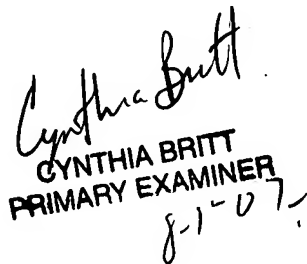 Cynthia Britt
CYNTHIA BRITT
PRIMARY EXAMINER
8-1-07